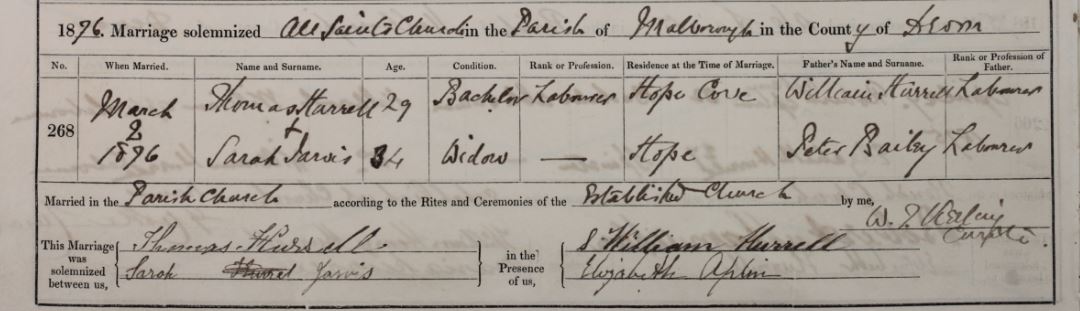 1896. Marriage solemnized All Saints Church in the Parish of Malborough in the County of Devon
No. When Married. Name and Surname. Age. Condition. Rank or Profession. Residence at the Time of Marriage. Father's Name and Surname. Rank or Profession of Father.
268 March 2 1896
Thomas Hurrell 29 Bachelor Labourer Hope Cove William Hurrell Labourer
+
Sarah Jarvis 34 Widow — Hope Peter Bailey Labourer
Married in the Parish Church according to the Rites and Ceremonies of the Established Church by me,
W. Curate.
This Marriage was solemnized between us,
Thomas Hurrell
Sarah Hurrel Jarvis
in the Presence of us,
S William Hurrell
Elizabeth Aplin